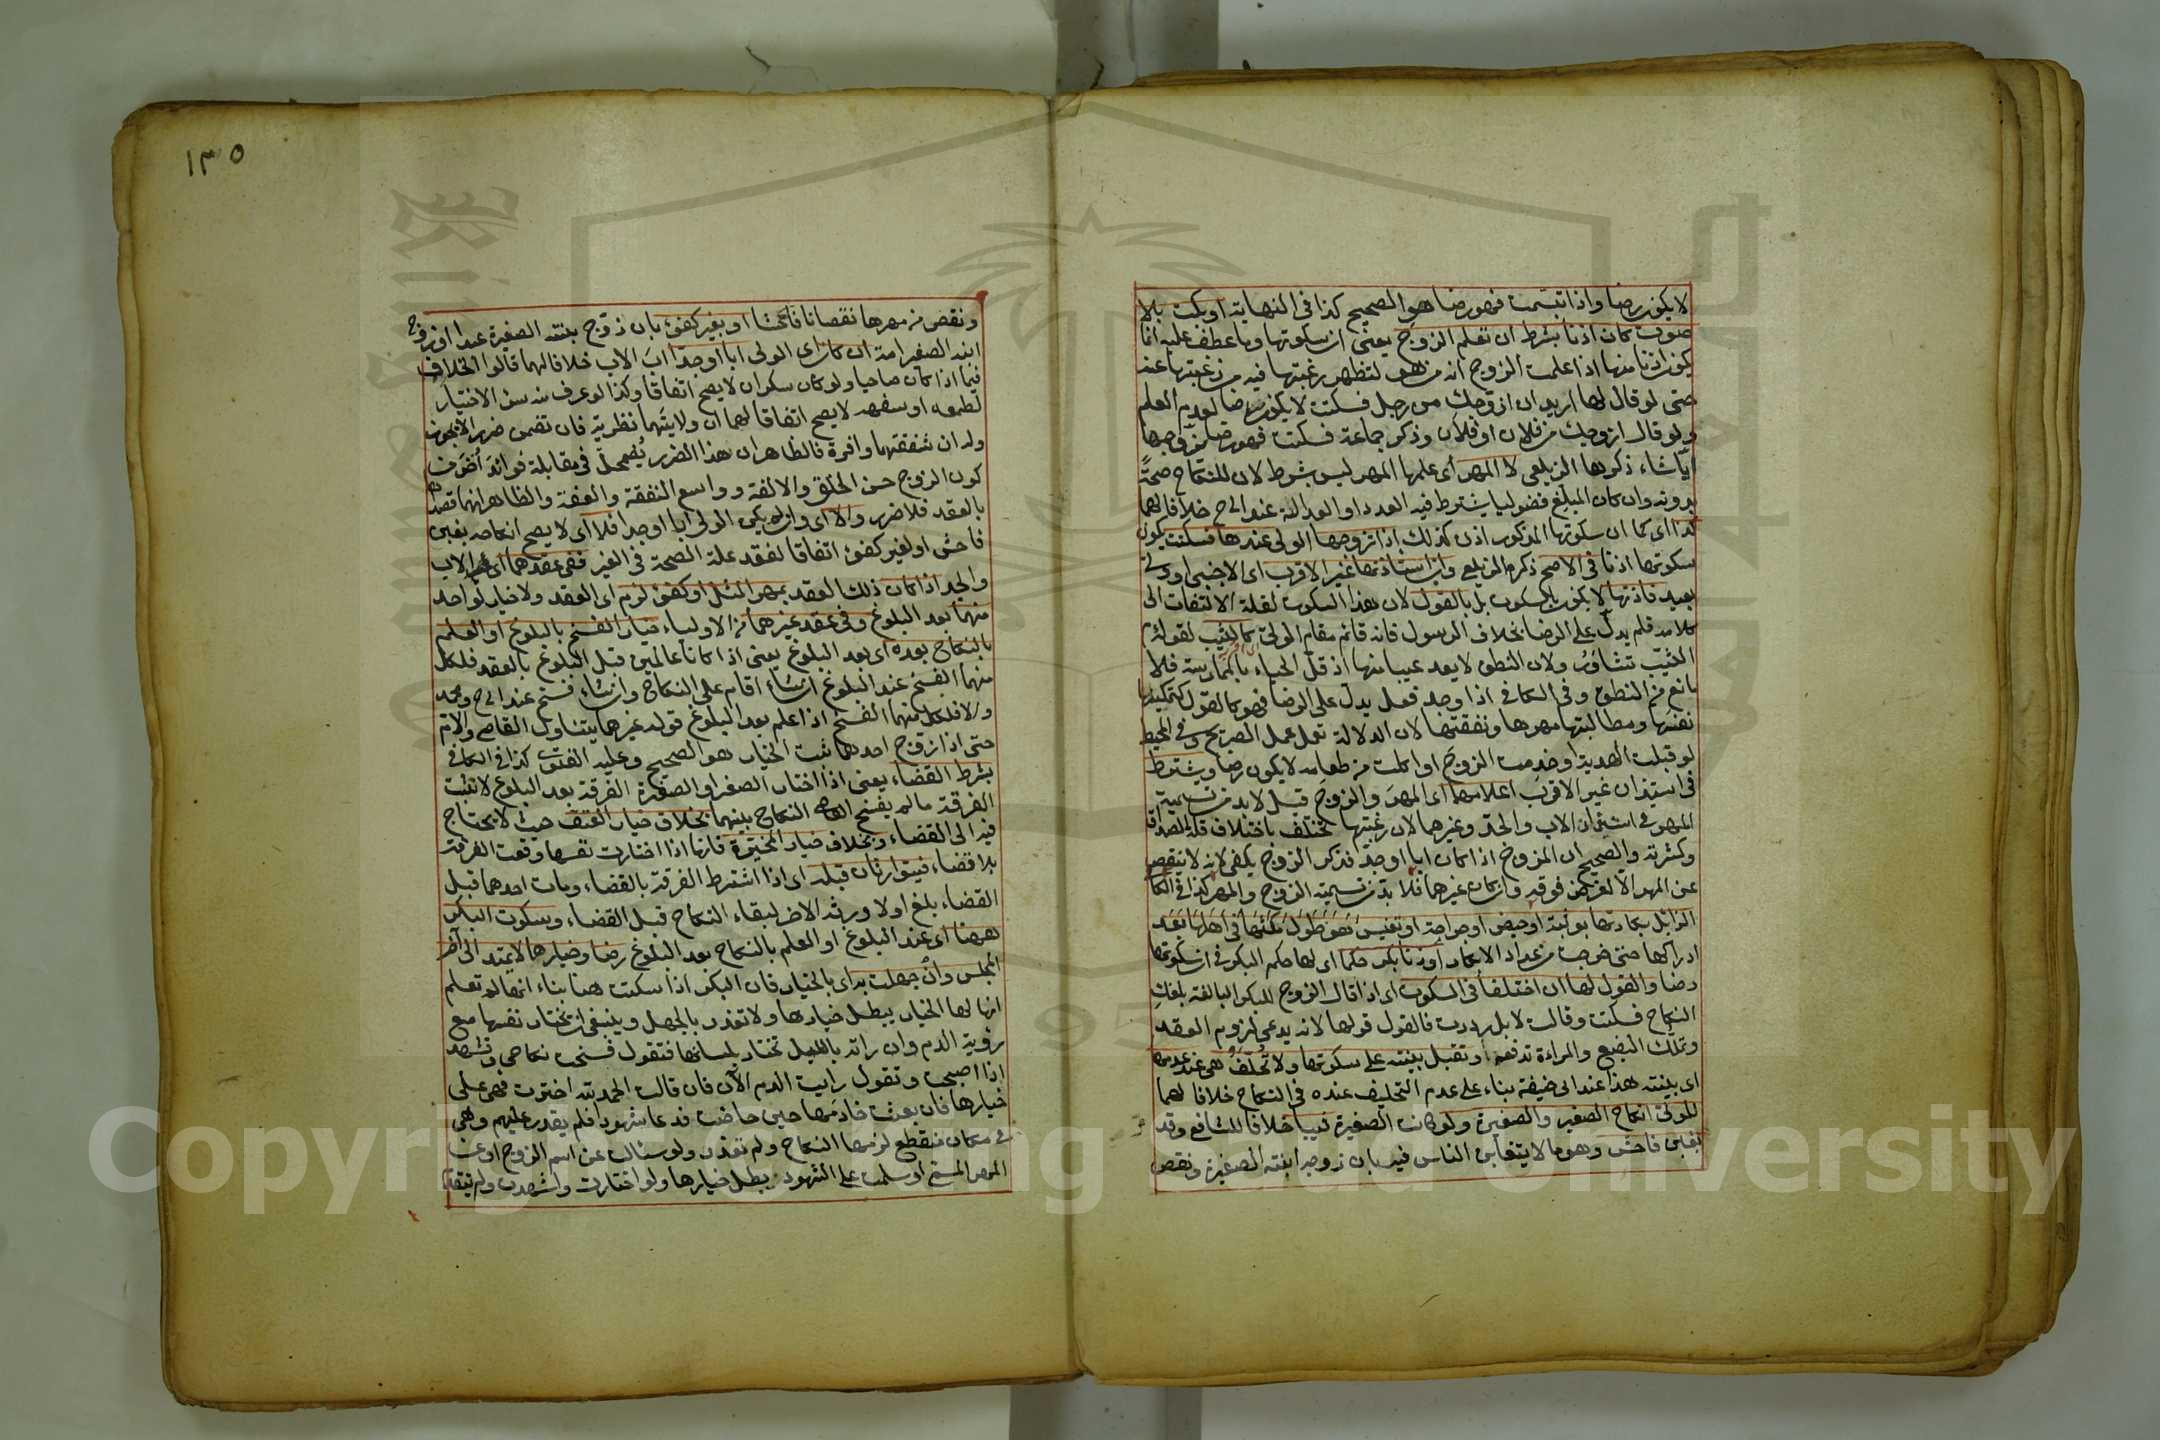 لا يكون رضا واذا تبسمت فهو رضا هو الصحيح كذا في النهاية او بكت بلا
صوت كان اذنا بشرط ان تعلم الزوج يعني ان سكوتها وما عطف عليه انما
يكون اذنا منها اذا علمت الزوج انه من هو لتظهر رغبتها فيه من رغبتها عنه
حتى لو قال لها اريد ان ازوجك من رجل فسكتت لا يكون رضا لعدم العلم
ولو قال ازوجك من فلان او فلان وذكر جماعة فسكتت فهو رضا يزوجها
ايا شاء ذكرها الزيلعي لا المهر اي علمها المهر ليس بشرط لان للنكاح صحة
بدونه وان كان المبلغ فضوليا يشترط فيه العدد او العدالة عند ابي ح خلافا لهما
كذا اي كما ان سكوتها المذكور اذن كذلك اذا تزوجها الولي عندها فسكتت يكون
سكوتها اذنا في الاصح ذكره الزيلعي وان استاذنها غير الاقرب اي الاجنبي او ولي
بعيد فاذنها لا يكون بالسكوت بل بالقول لان هذا السكوت لقلة الالتفات الى
كلامه فلم يدل على الرضا بخلاف الرسول فانه قائم مقام الولي كالثيب لقوله م
الثيب تشاور ولان النطق لا يعد عيبا منها اذ قل الحياء بالممارسة فلا
مانع من النطق وفي الكافي اذا وجد فعل يدل على الرضا فهو كالقول كتمكينها
نفسها ومطالبتها مهرها ونفقتها لان الدلالة تعمل عمل الصريح وفي المحيط
لو قبلت الهدية او خدمت الزوج او اكلت من طعامه لا يكون رضا ويشترط
في استيذان غير الاقرب اعلامها اي المهر والزوج قيل لا بد من تسمية
المهر في استيمار الاب والجد وغيرهما لان رغبتها تختلف باختلاف قلة الصداق
وكثرته والصحيح ان المزوج اذا كان ابا او جدا فذكر الزوج يكفي لانه لا ينقص
عن المهر الا لغرض فوقه وان كان غيرهما فلا بد من تسمية الزوج والمهر كذا في الكا
الزائل بكارتها بوثبة او حيض او جراحة او تعنيس وهو طول مكثها في اهلها بعد
ادراكها حتى خرجت من عداد الابكار او زنا بكر حكما اي لها حكم البكر في ان سكوتها
رضا والقول لها ان اختلفا في السكوت اي اذا قال الزوج للبكر البالغة بلغك
النكاح فسكتت وقالت لا بل رددت فالقول قولها لانه يدعي لزوم العقد
وتملك البضع والمراة تدفعه وتقبل بينته على سكوتها ولا تحلف هي عند عدمها
اي بينته هذا عند ابي حنيفة بناء على عدم التحليف عنده في النكاح خلافا لهما
للولي انكاح الصغير والصغيرة ولو كانت الصغيرة ثيبا خلافا للشافعي وقد
بغبن فاحش وهو ما لا يتغابن الناس فيه بان زوج ابنته الصغيرة ونقص
١٣٥
ونقص من مهرها نقصانا فاحشا او بغير كفؤ بان زوج بنته الصغيرة عبدا او زوج
ابنه الصغير امة ان كان اي الولي ابا او جدا اب الاب خلافا لهما قالوا الخلاف
فيما اذا كان صاحيا ولو كان سكران لا يصح اتفاقا وكذا لو عرف منه سؤ الاختيار
لطمعه او سفهه لا يصح اتفاقا لهما ان ولايتهما نظرية فان تضمن ضررا لا يجوز
وله ان شفقتهما وافرة فالظاهر ان هذا الضرر يضمحل في مقابلة فوائد اخر من
كون الزوج حسن الخلق والالفة وواسع النفقة والعفة والظاهر انهما قصدا
بالعقد فلا ضرر والا اي وان لم يكن الولي ابا او جدا فلا اي لا يصح انكاحه بغبن
فاحش او لغير كفؤ اتفاقا لفقد علة الصحة في الغير ففي عقدهما اي عقد الاب
والجد اذا كان ذلك العقد بمهر المثل او كفؤ لزم اي العقد ولا خيار لواحد
منهما بعد البلوغ وفي عقد غيرهما من الاولياء خيار الفسخ بالبلوغ او العلم
بالنكاح بعده اي بعد البلوغ يعني اذا كانا عالمين قبل البلوغ بالعقد فلكل
منهما الفسخ عند البلوغ ان شاء اقام على النكاح وان شاء فسخ عند ابي ح ومحمد
والا فلكل منهما الفسخ اذا علم بعد البلوغ قوله غيرهما يتناول القاضي والام
حتى اذا زوج احدهما ثبت الخيار هو الصحيح وعليه الفتوى كذا في الكافي
بشرط القضاء يعني اذا اختار الصغير او الصغيرة الفرقة بعد البلوغ لا تثبت
الفرقة ما لم يفسخ القاضي النكاح بينهما بخلاف خيار العتق حيث لا يحتاج
فيه الى القضاء وبخلاف خيار المخيرة فانها اذا اختارت نفسها وقعت الفرقة
بلا قضاء فيتوارثان قبله اي اذا اشترط الفرقة بالقضاء ومات احدهما قبل
القضاء بلغ او لا ورثه الاخر لبقاء النكاح قبل القضاء وسكوت البكر
ههنا اي عند البلوغ او العلم بالنكاح بعد البلوغ رضا وخيارها لا يمتد الى آخر
المجلس وان جهلت به اي بالخيار فان البكر اذا سكتت هنا بناء انها لم تعلم
ان لها الخيار يبطل خيارها ولا تعذر بالجهل وينبغي ان تختار نفسها مع
رؤية الدم وان راته بالليل تختار بلسانها فتقول فسخت نكاحي وتشهد
اذا اصبحت وتقول رايت الدم الآن فان قالت الحمد لله اخترت فهي على
خيارها فان بعثت خادمها حين حاضت فدعا شهودا فلم يقدر عليهم وهي
في مكان منقطع لزمها النكاح ولم تعذر ولو سئالت عن اسم الزوج او عن
المهر المسمى او سلمت على الشهود يبطل خيارها ولو اختارت واشهدت ولم تتقدم